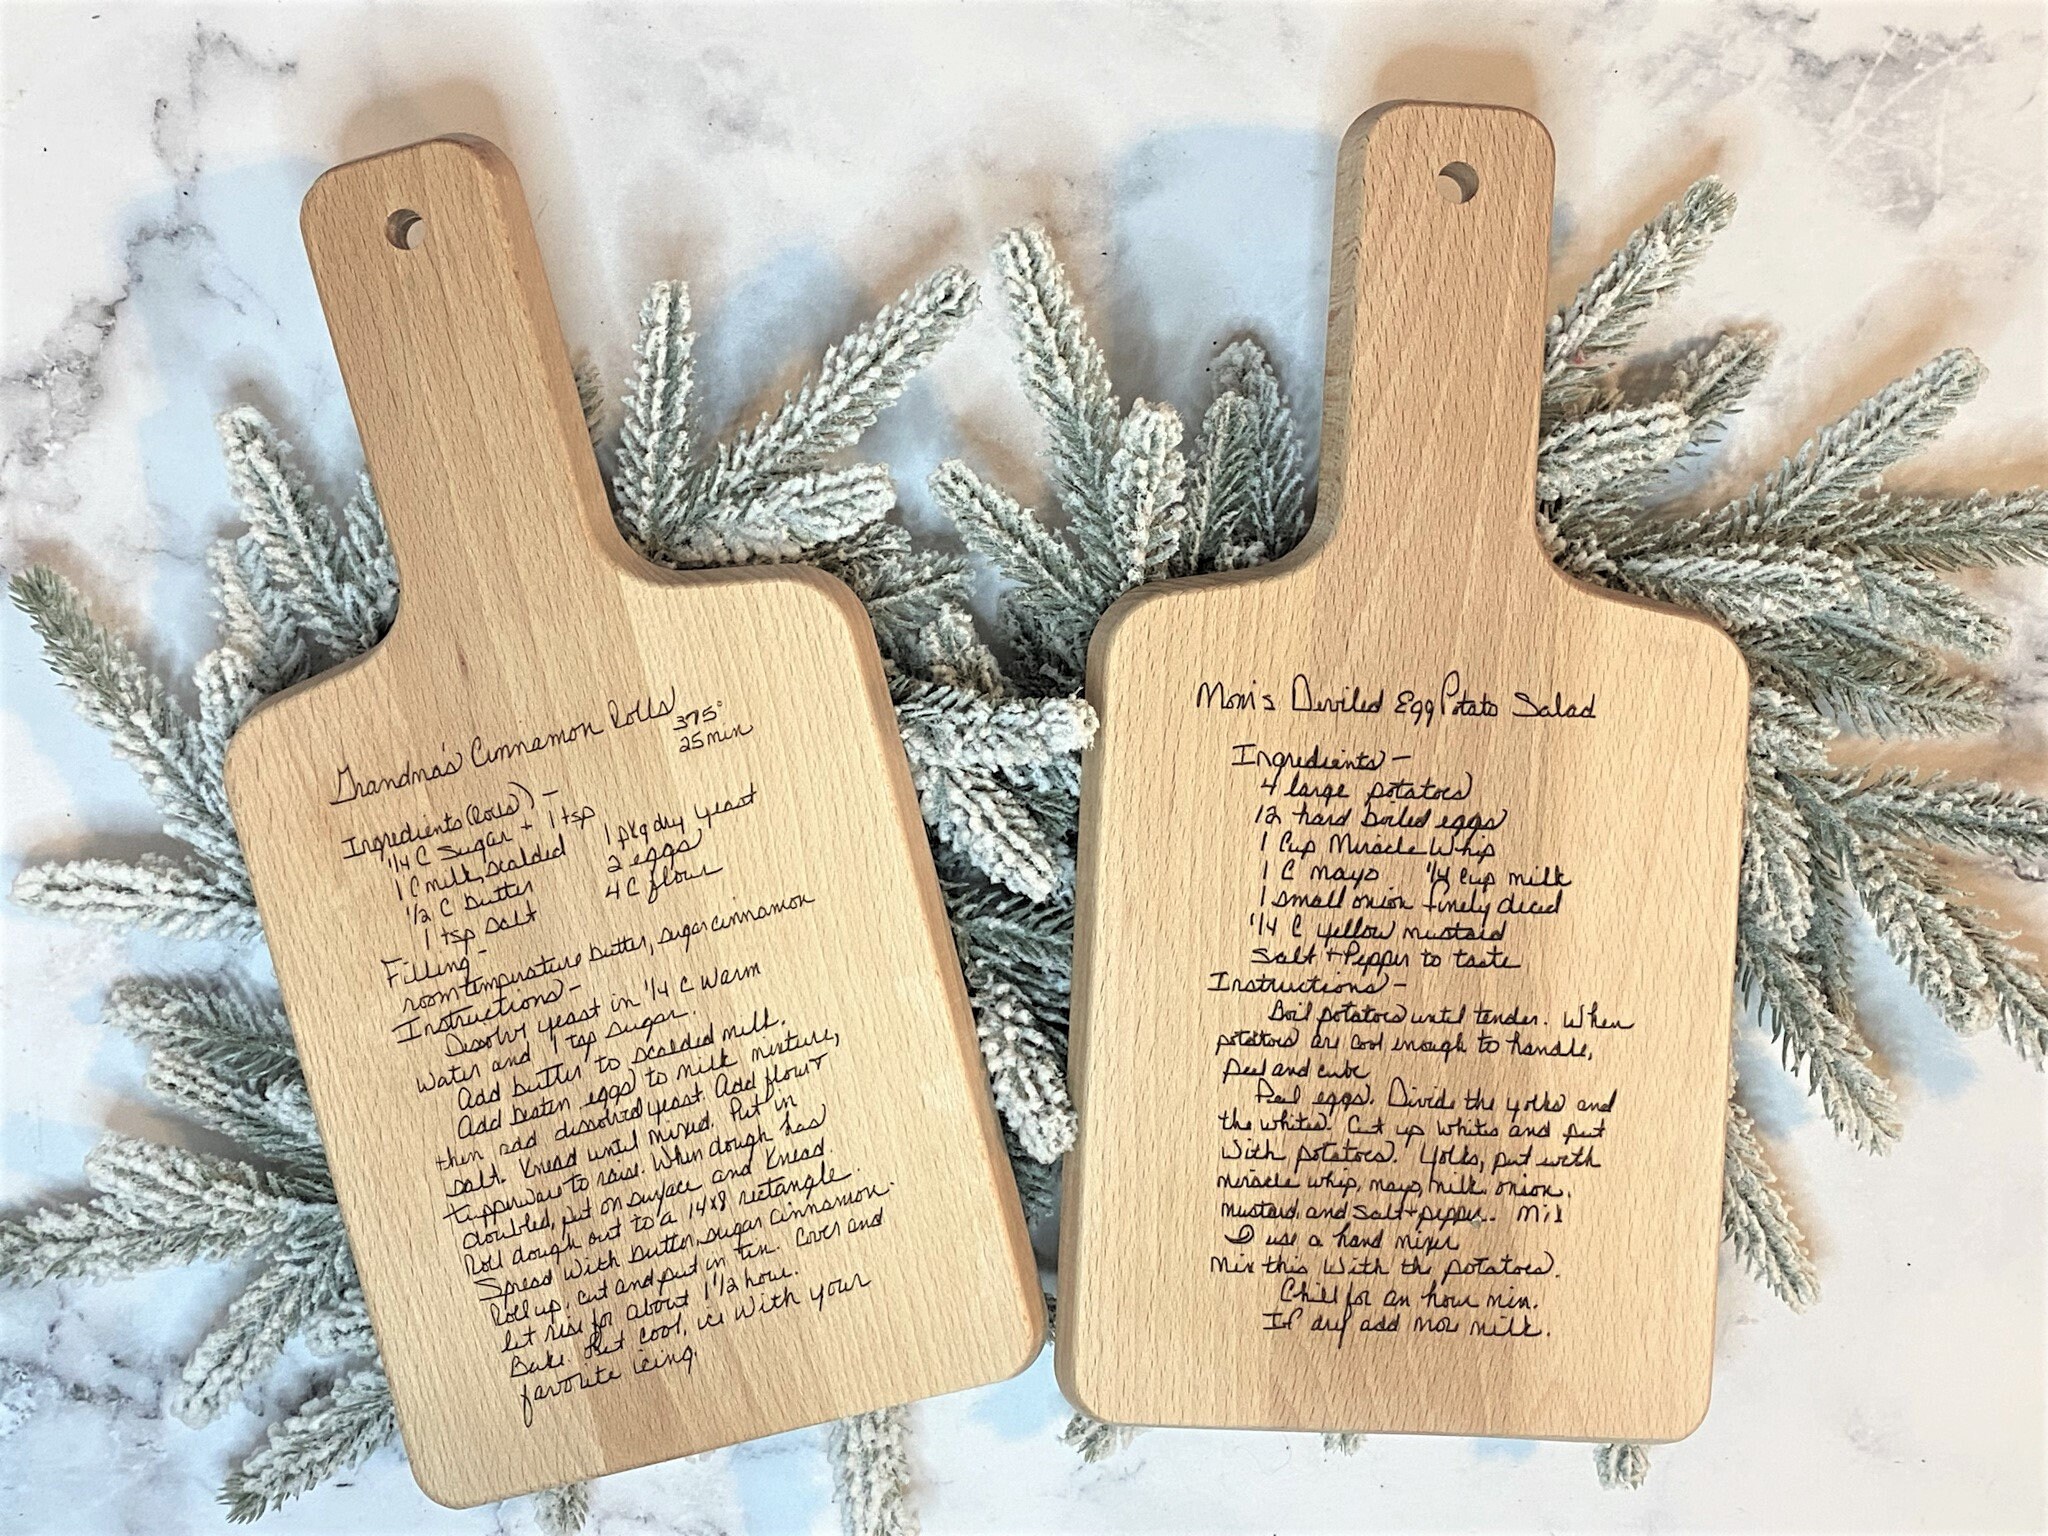 Grandma's Cinnamon Rolls
375°
25 min
Ingredients (Rolls) -
1/4 C Sugar + 1 tsp
1 C milk, scalded
1/2 C butter
1 tsp salt
1 pkg dry yeast
2 eggs
4 C flour
Filling -
room temperature butter, sugar cinnamon
Instructions -
Dissolve yeast in 1/4 C warm
water and 1 tsp sugar.
Add butter to scalded milk.
Add beaten eggs to milk mixture,
then add dissolved yeast. Add flour +
salt. Knead until mixed. Put in
tupperware to raise. When dough has
doubled, put on surface and knead.
Roll dough out to a 14x8 rectangle.
Spread with butter, sugar cinnamon.
Roll up, cut and put in tin. Cover and
let rise for about 1 1/2 hour.
Bake. Let cool, ice with your
favorite icing.
Mom's Deviled Egg Potato Salad
Ingredients -
4 large potatoes
12 hard boiled eggs
1 Cup Miracle Whip
1 C mayo 1/4 cup milk
1 small onion finely diced
1/4 C yellow mustard
Salt + Pepper to taste
Instructions -
Boil potatoes until tender. When
potatoes are cool enough to handle,
peel and cube
Peel eggs. Divide the yolks and
the whites. Cut up whites and put
with potatoes. Yolks, put with
miracle whip, mayo, milk, onion,
mustard, and salt + pepper. Mix
I use a hand mixer
Mix this with the potatoes.
Chill for an hour min.
If dry add more milk.